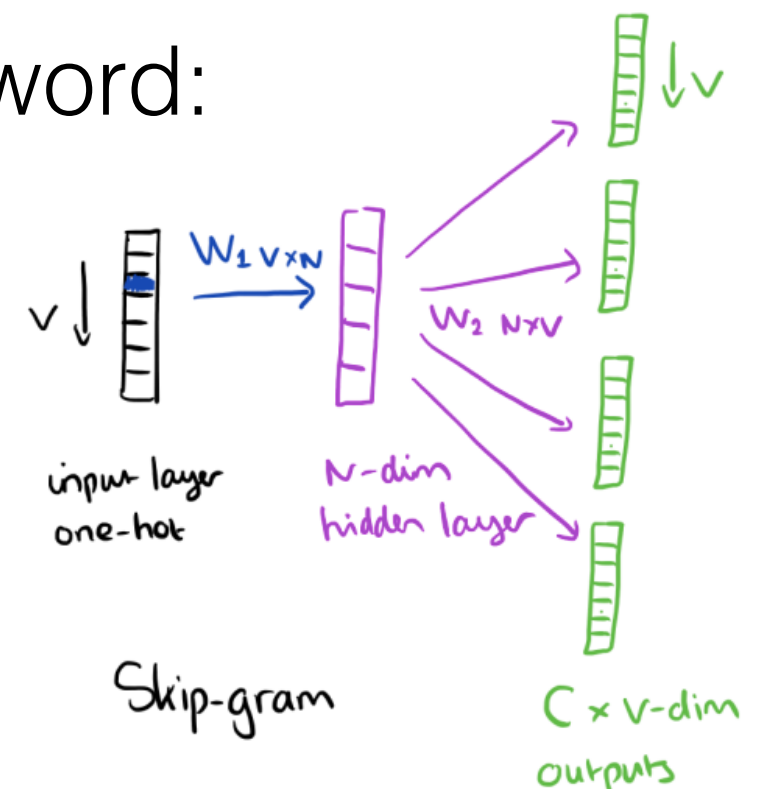 word:
V
W1 V×N
V
W2 N×V
input layer
one-hot
N-dim
hidden layer
Skip-gram
C × V-dim
outputs